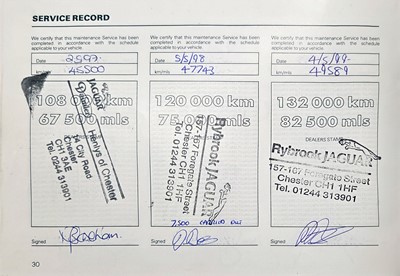 SERVICE RECORD
We certify that this maintenance Service has been
completed in accordance with the schedule
applicable to your vehicle.
Date
km/mls 45500
108 000 km
67 500 mls
JAGUAR
Daimler
Henlys of Chester
City Road
Chester
CH1 3AE
Tel. 0244 313901
Signed
We certify that this maintenance Service has been
completed in accordance with the schedule
applicable to your vehicle.
Date 5/5/98
km/mls 47743
120 000 km
75 000 mls
Rybrook JAGUAR
157-167 Foregate Street
Chester CH1 1HF
Tel. 01244 313901
7,500
Signed
We certify that this maintenance Service has been
completed in accordance with the schedule
applicable to your vehicle.
Date 4/5/99
km/mls 49589
132 000 km
82 500 mls
DEALERS STAMP
Rybrook JAGUAR
157-167 Foregate Street
Chester CH1 1HF
Tel. 01244 313901
Signed
30